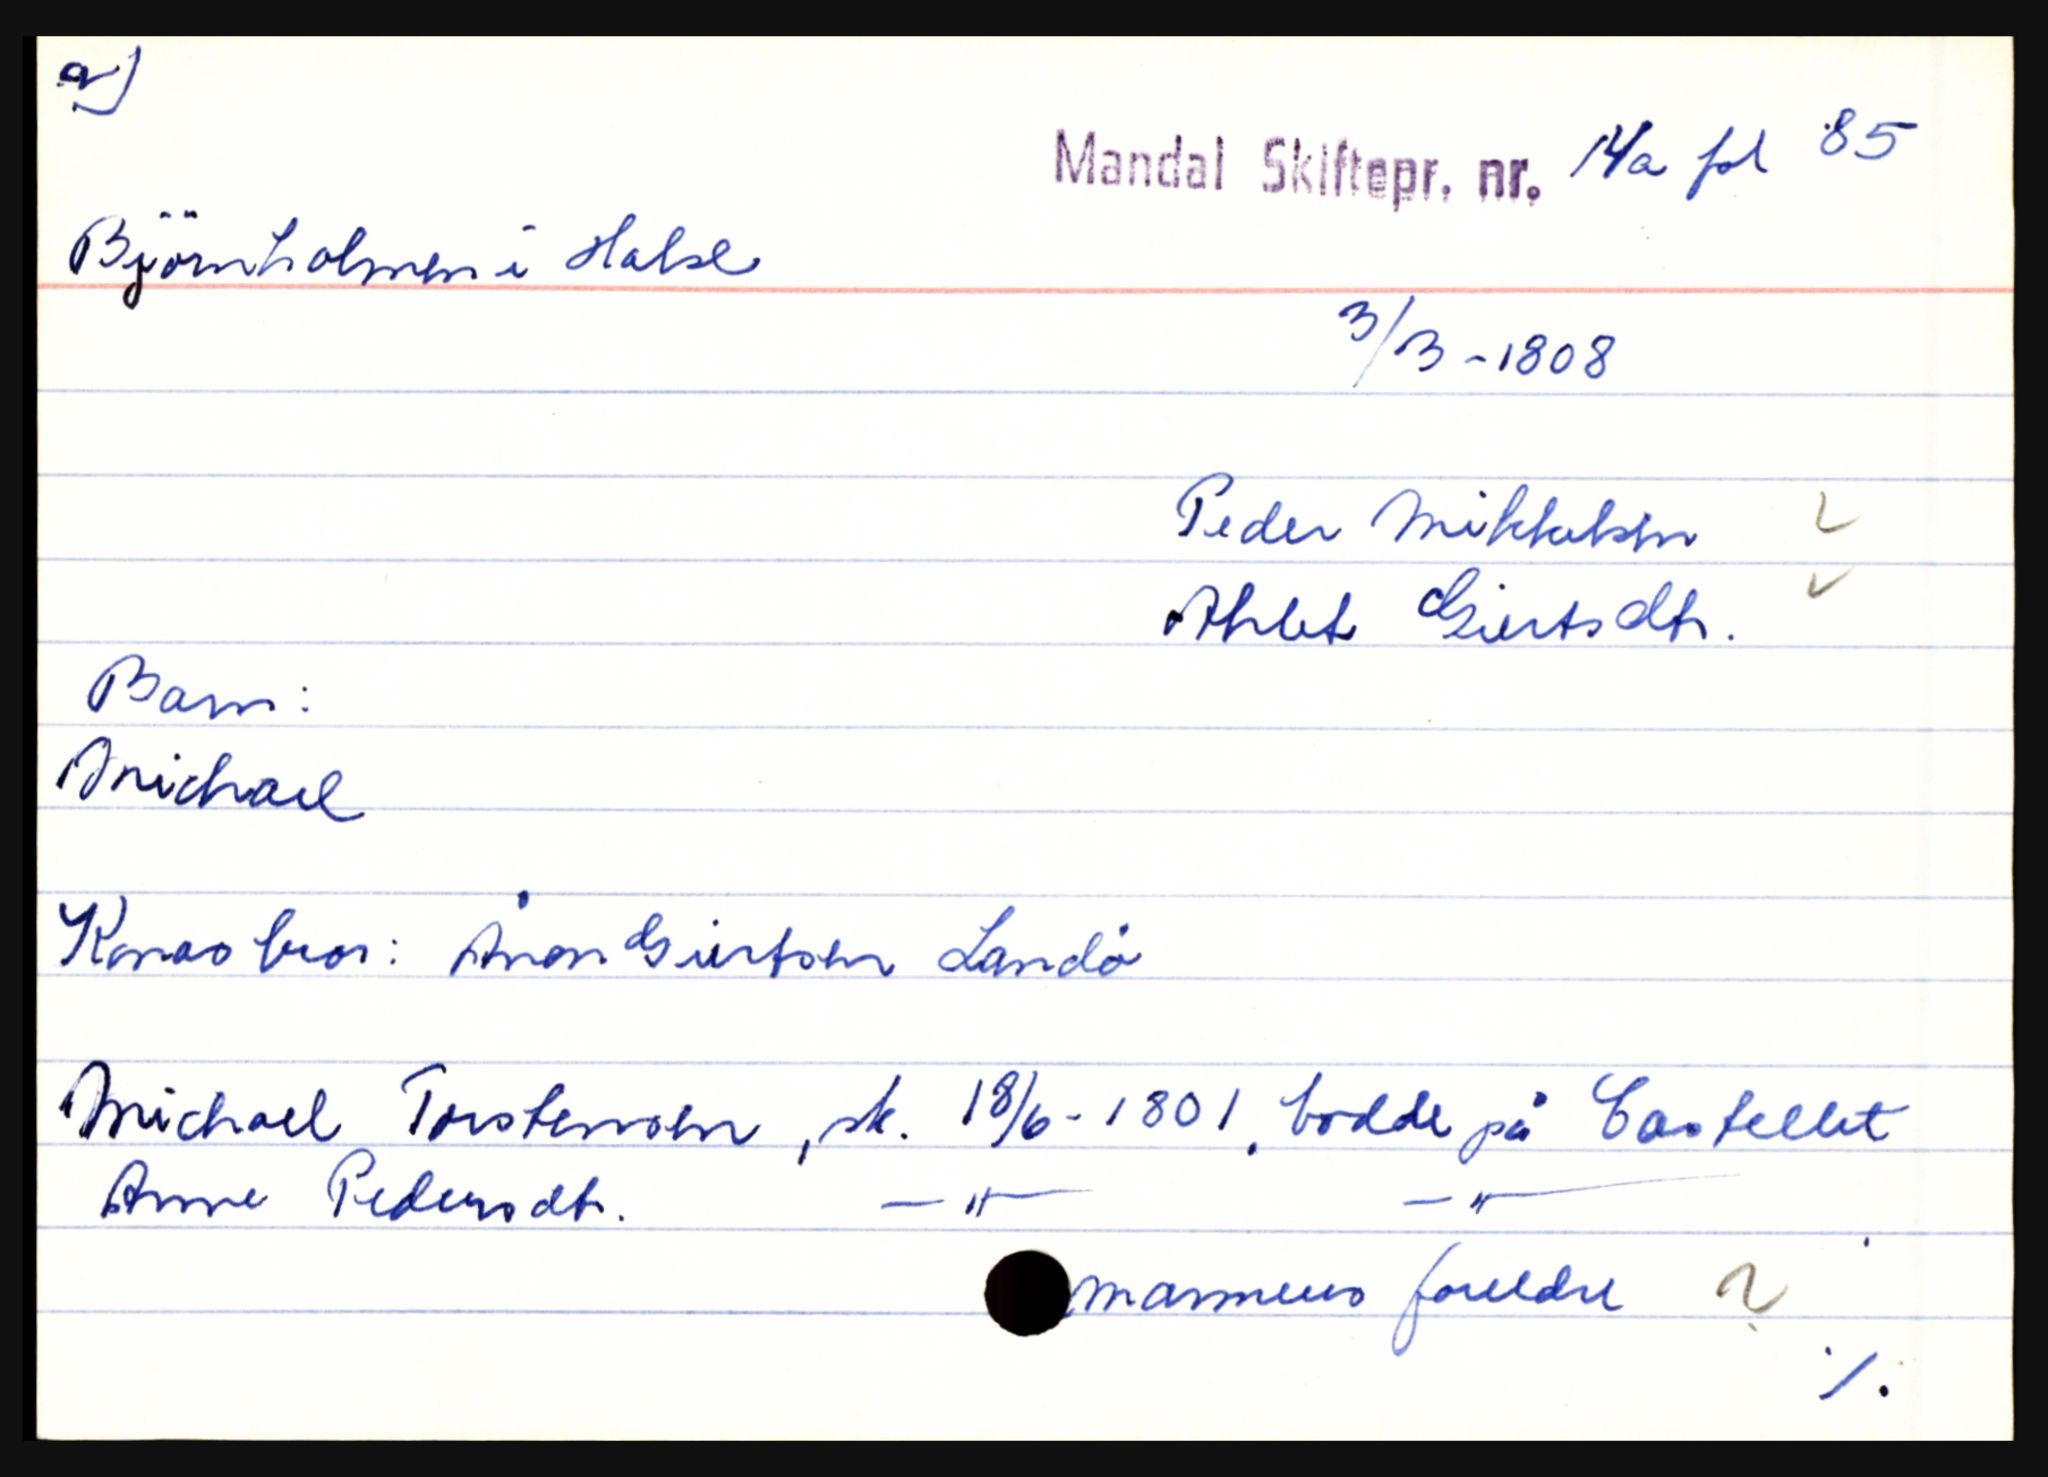 a)
Mandal Skiftepr. nr. 14a fol 85
Björnholmen i Halse
3/3 - 1808
Peder Mikkelsen
Ahlet Giertsdtr.
Barn:
Michael
Konas bror: Ånen Giertsen Landö
Michael Torstensen, sk. 18/6 - 1801, bodde på Castellet
Anne Pedersdtr. — " — — " —
mannens foreldre ?
./.